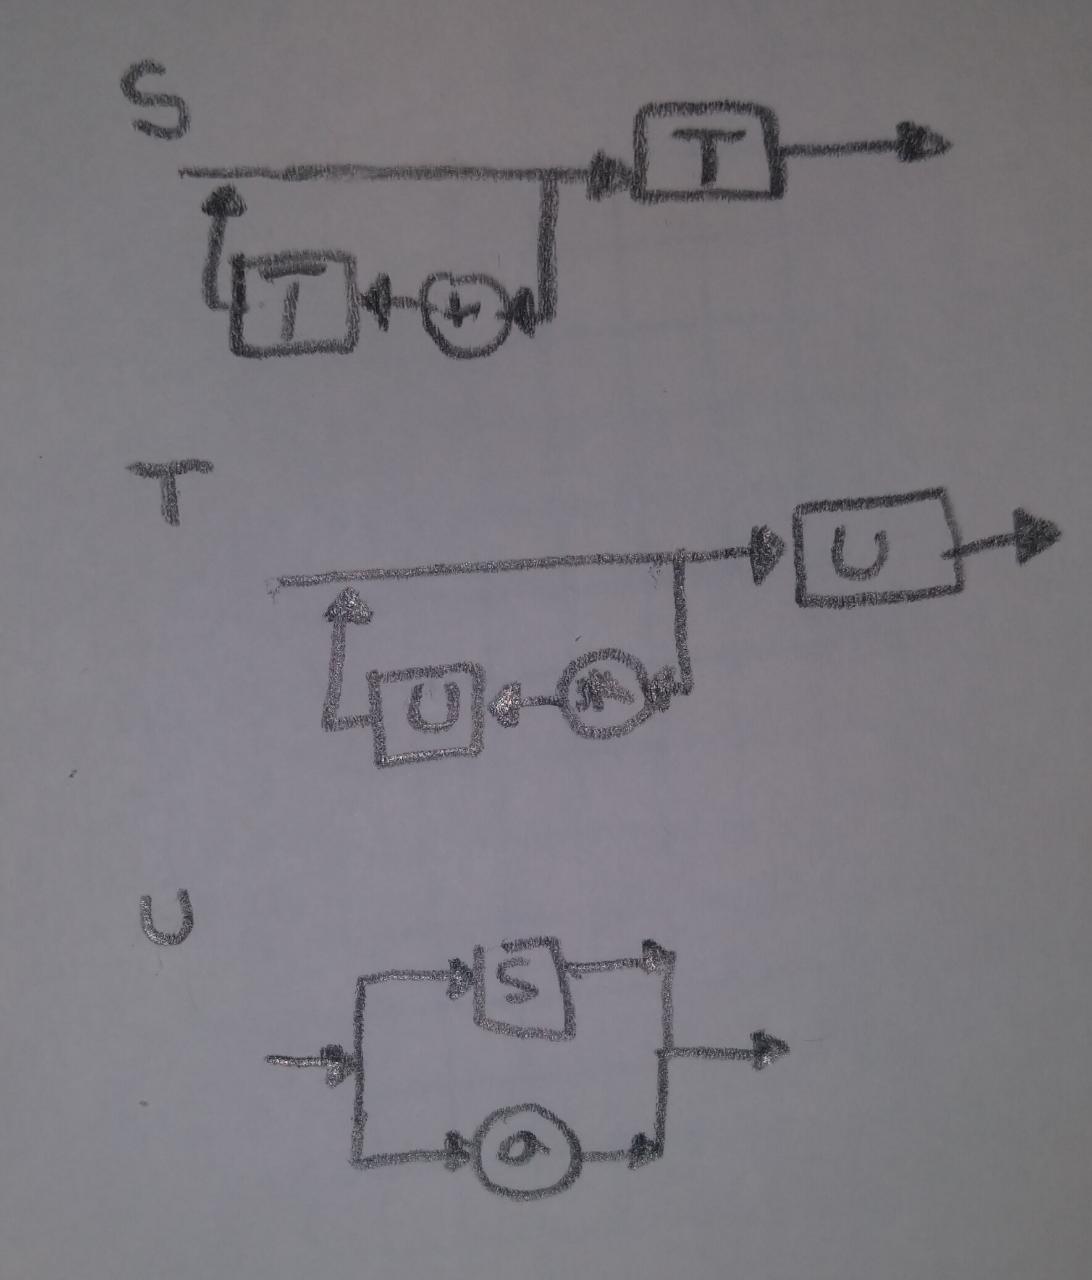 S
T
T +
T
U
U
U
S
a